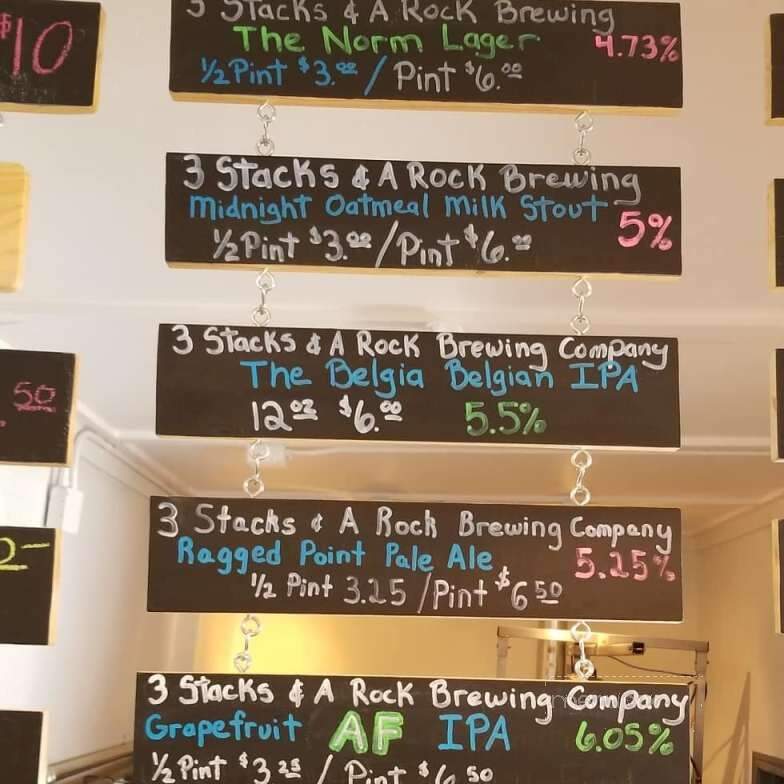 $10
3 Stacks & A Rock Brewing
The Norm Lager 4.73%
1/2 Pint $3.00 / Pint $6.00
3 Stacks & A Rock Brewing
Midnight Oatmeal Milk Stout 5%
1/2 Pint $3.00 / Pint $6.00
3 Stacks & A Rock Brewing Company
The Belgia Belgian IPA
12 oz $6.00 5.5%
.50
3 Stacks & A Rock Brewing Company
Ragged Point Pale Ale 5.25%
1/2 Pint 3.25 / Pint $6 50
3 Stacks & A Rock Brewing Company
Grapefruit AF IPA 6.05%
1/2 Pint $3 25 / Pint $6 50